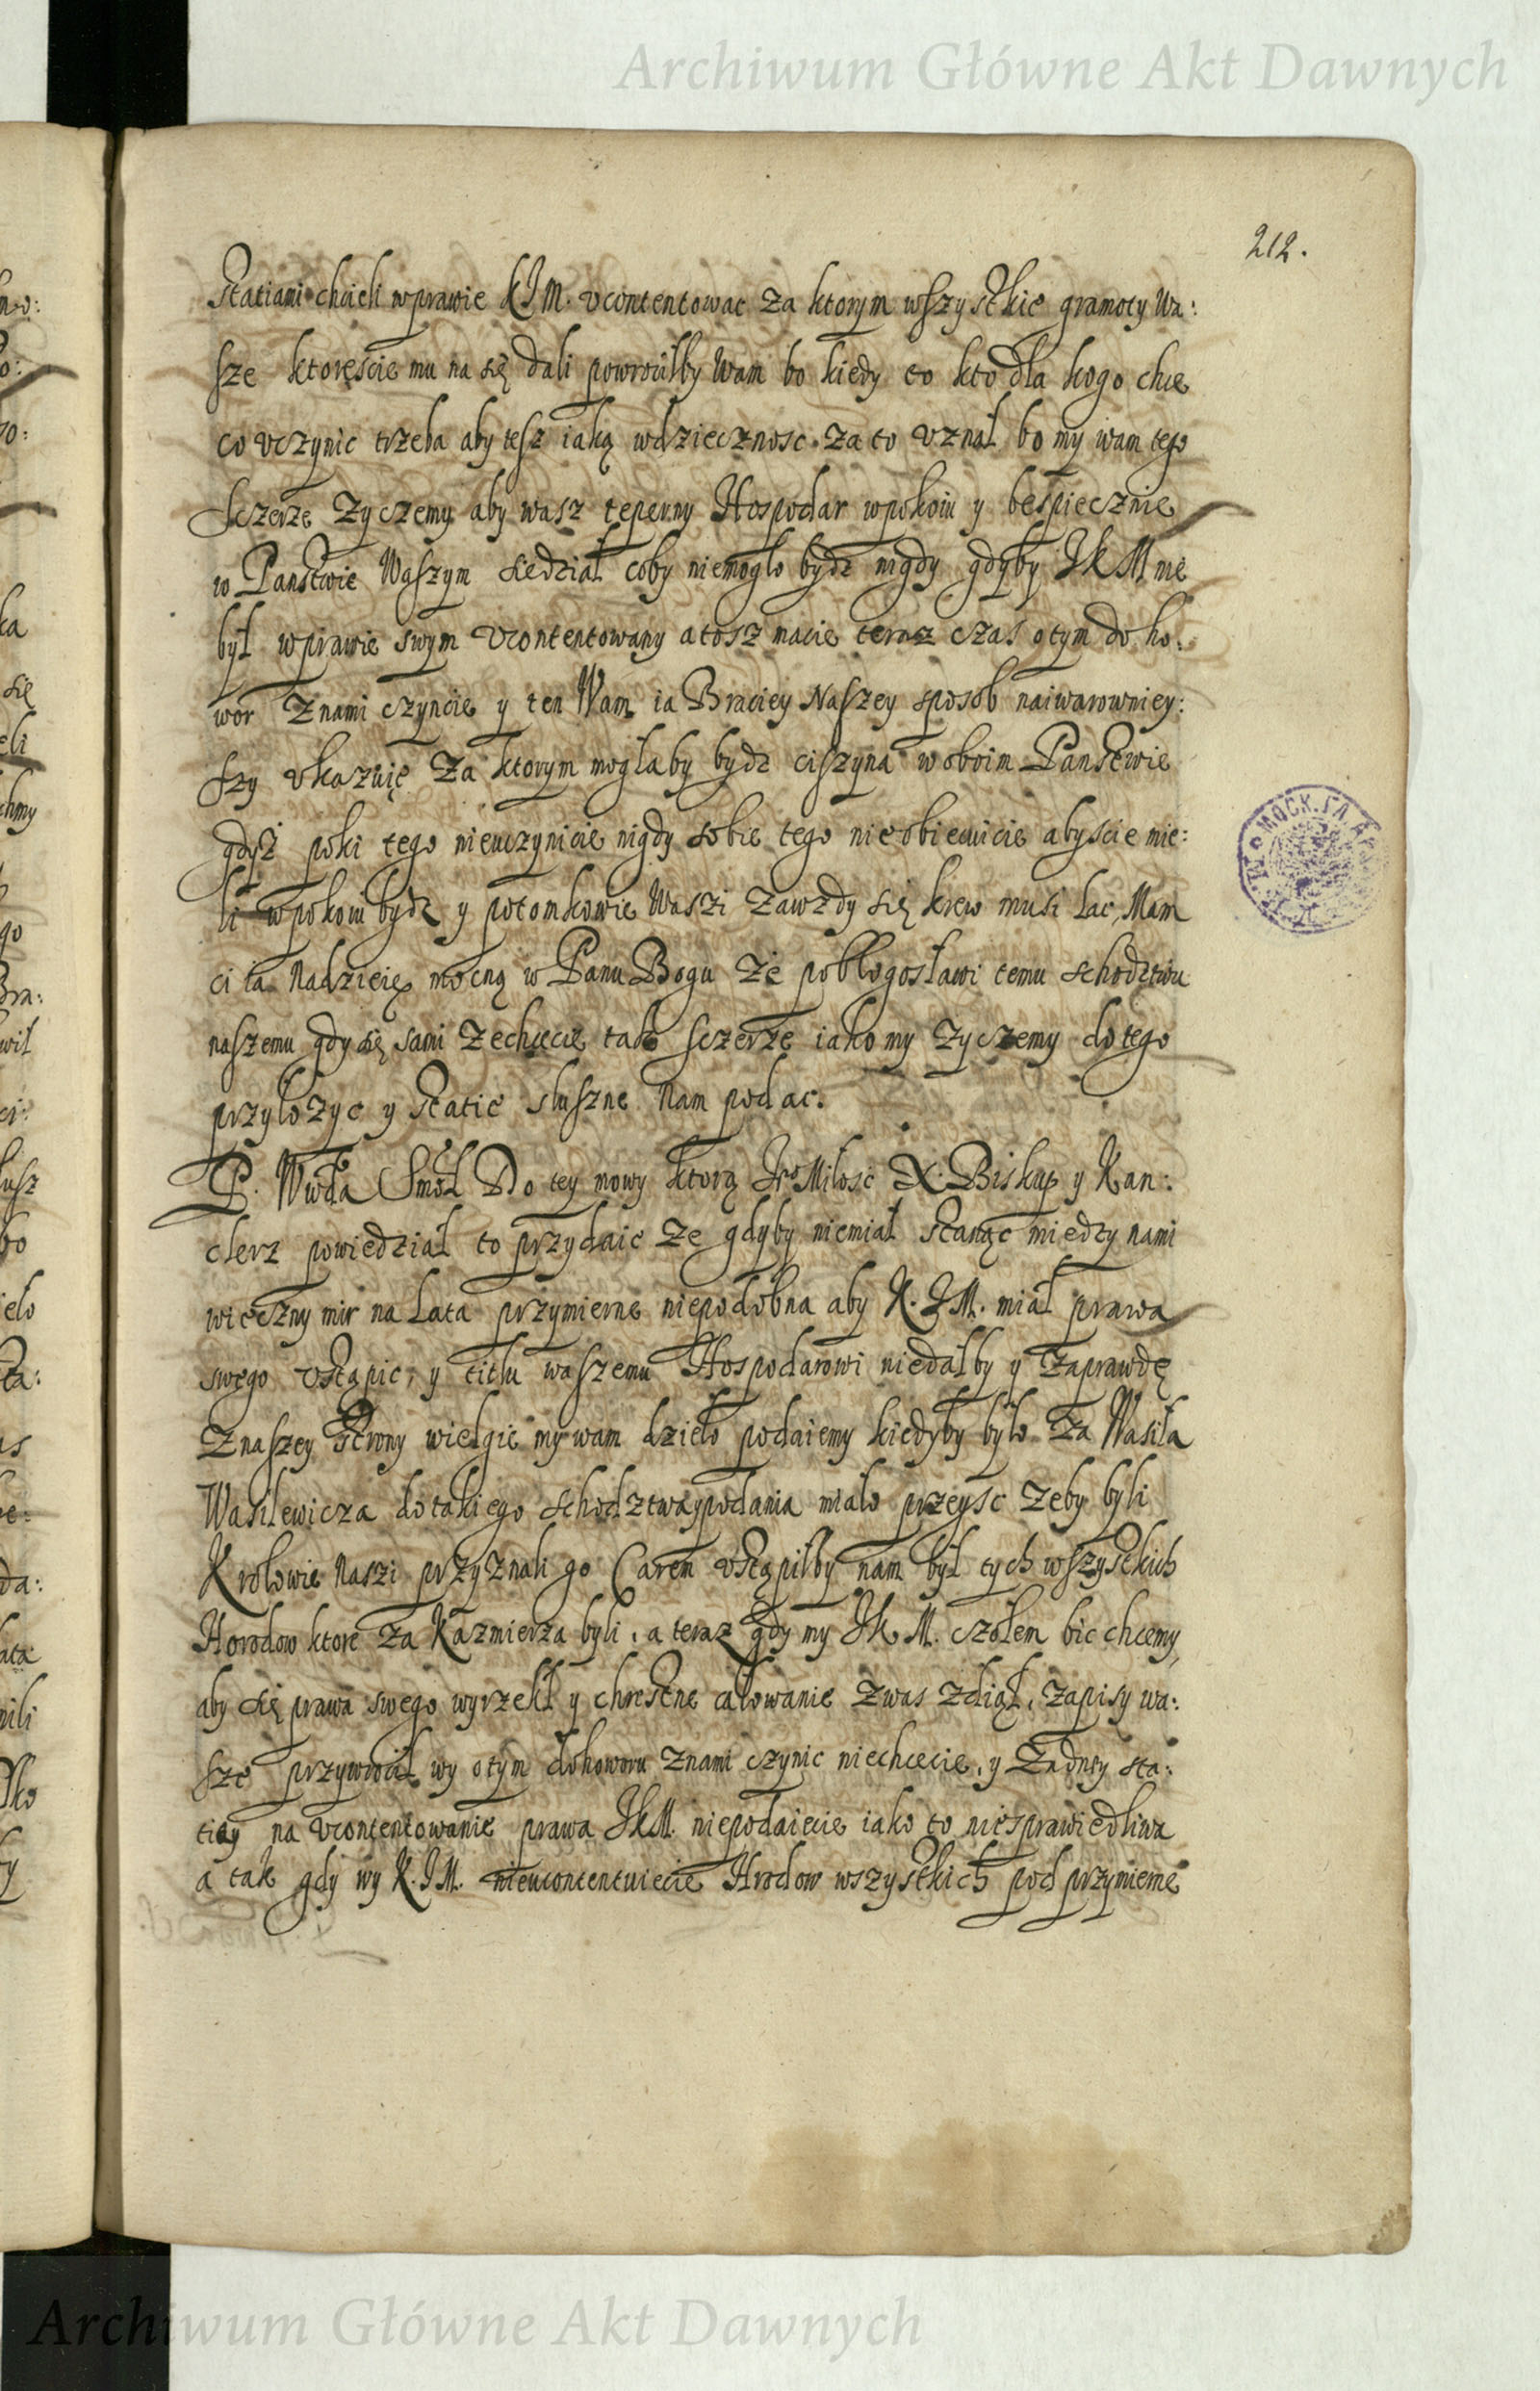 Archiwum Główne Akt Dawnych
212.
Statiami chcieli wprawie KJM. vcontentowac za ktorym wszystkie gramoty Wa:
sze ktoreście mu na się dali powrociłby Wam bo kiedy co kto dla kogo chce
co vczynic trzeba aby tesz iaką wdziecznosc za to vznał bo my wam tego
sczerze zyczemy aby wasz teperny Hospodar wpokoiu y bespiecznie
w Panstwie Waszym siedział coby niemogło bydz nigdy gdyby JKM nie
był wprawie swym vcontentowany atosz macie teraz czas otym doho:
wor znami czyncie y ten Wam ia Braciey Naszey sposob naiwarowniey:
szy vkazuię za ktorym mogłaby bydz ciszyna w oboim Panstwie
gdyż poki tego nieuczynicie nigdy sobie tego nieobiecuicie abyscie mie:
li wpokoiu bydz y potomkowie Waszi zawzdy się krew musi lac, Mam
ci ia Nadzieię mocną w Panu Bogu że pobłogosławi temu schodztwu
naszemu gdy się sami zechcecie tak sczerze iako my zyczemy do tego
przyłozyc y statie słuszne Nam podac.
P. Wwda Smol Do tey mowy ktorą Jeo Miłosc X. Biskup y Kan:
clerz powiedział to przydaie ze gdyby niemiał stanąc miedzy nami
wieczny mir na Lata przymierne niepodobna aby K. JM. miał prawa
swego vstąpic, y titłu waszemu Hospodarowi niedałby y zaprawdę
znaszey strony wielgie my wam dzieło podaiemy kiedyby było za Wasila
Wasilewicza do takiego schodztwa y podania miało przeysc zeby byli
Krolowie Naszi przyznali go Carem vstąpiłby nam był tych wszystkich
Horodow ktore za Kazmierza byli, a teraz gdy my JK M. czołem bic chcemy,
aby się prawa swego wyrzekł y chrestne całowanie zwas zdiął, zapisy wa:
sze przywrocił wy otym dohoworu znami czynic niechcecie, y żadney sta:
tiey na vcontentowanie prawa JKM. niepodaiecie iako to niesprawiedliwa
a tak gdy wy K. JM. nieucontentuiecie Hrodow wszystkich pod przymierne
МОСК. ГЛ. А
Archiwum Główne Akt Dawnych